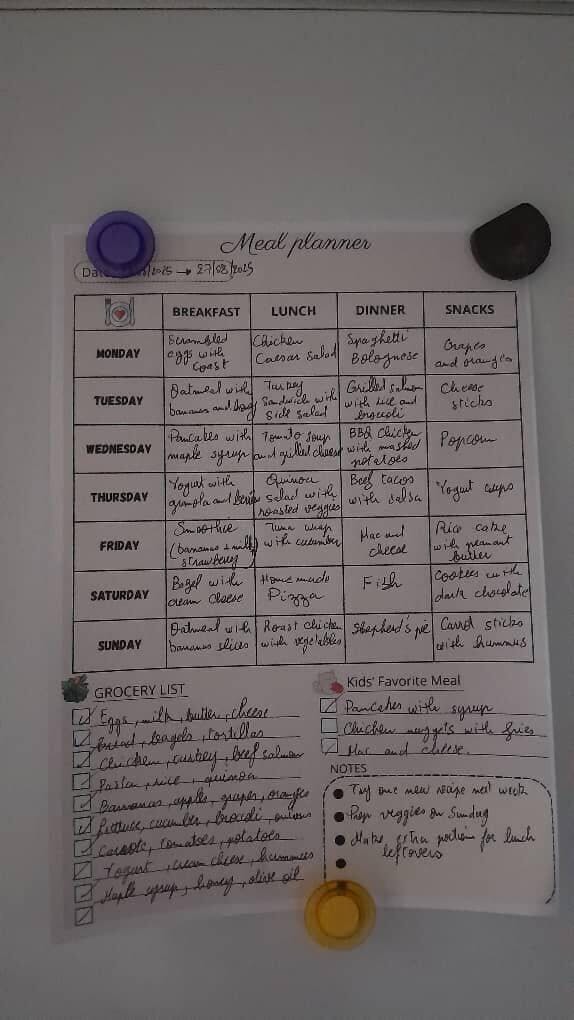 Meal planner
Date /2025 → 27/08/2025
BREAKFAST LUNCH DINNER SNACKS
MONDAY
Scrambled eggs with toast
Chicken Caesar salad
Spaghetti Bolognese
Grapes and oranges
TUESDAY
Oatmeal with bananas and honey
Turkey sandwich with side salad
Grilled salmon with rice and broccoli
Cheese sticks
WEDNESDAY
Pancakes with maple syrup
Tomato soup and grilled cheese
BBQ Chicken with mashed potatoes
Popcorn
THURSDAY
Yogurt with granola and berries
Quinoa salad with roasted veggies
Beef tacos with salsa
Yogurt cups
FRIDAY
Smoothie (bananas + milk strawberry)
Tuna wrap with cucumber
Mac and cheese
Rice cake with peanut butter
SATURDAY
Bagel with cream cheese
Homemade Pizza
Fish
Cookies with dark chocolate
SUNDAY
Oatmeal with bananas slices
Roast chicken with vegetables
Shepherd's pie
Carrot sticks with hummus
GROCERY LIST
Eggs, milk, butter, cheese
Bread, bagels, tortillas
Chicken, turkey, beef salmon
Pasta, rice, quinoa
Bananas, apples, grapes, oranges
lettuce, cucumber, brocoli, onions
Carrots, tomatoes, potatoes
Yogurt, cream cheese, hummus
Maple syrup, honey, olive oil
Kids' Favorite Meal
Pancakes with syrup
Chicken nuggets with fries
Mac and cheese.
NOTES
Try one new recipe next week
Prep veggies on Sunday
Make extra portion for lunch
leftovers